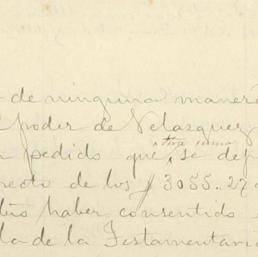 de ninguna manera
poder de Velasquez
pedido que se de
suma
de los $ 3055..27
haber consentido
la de la Testamentari